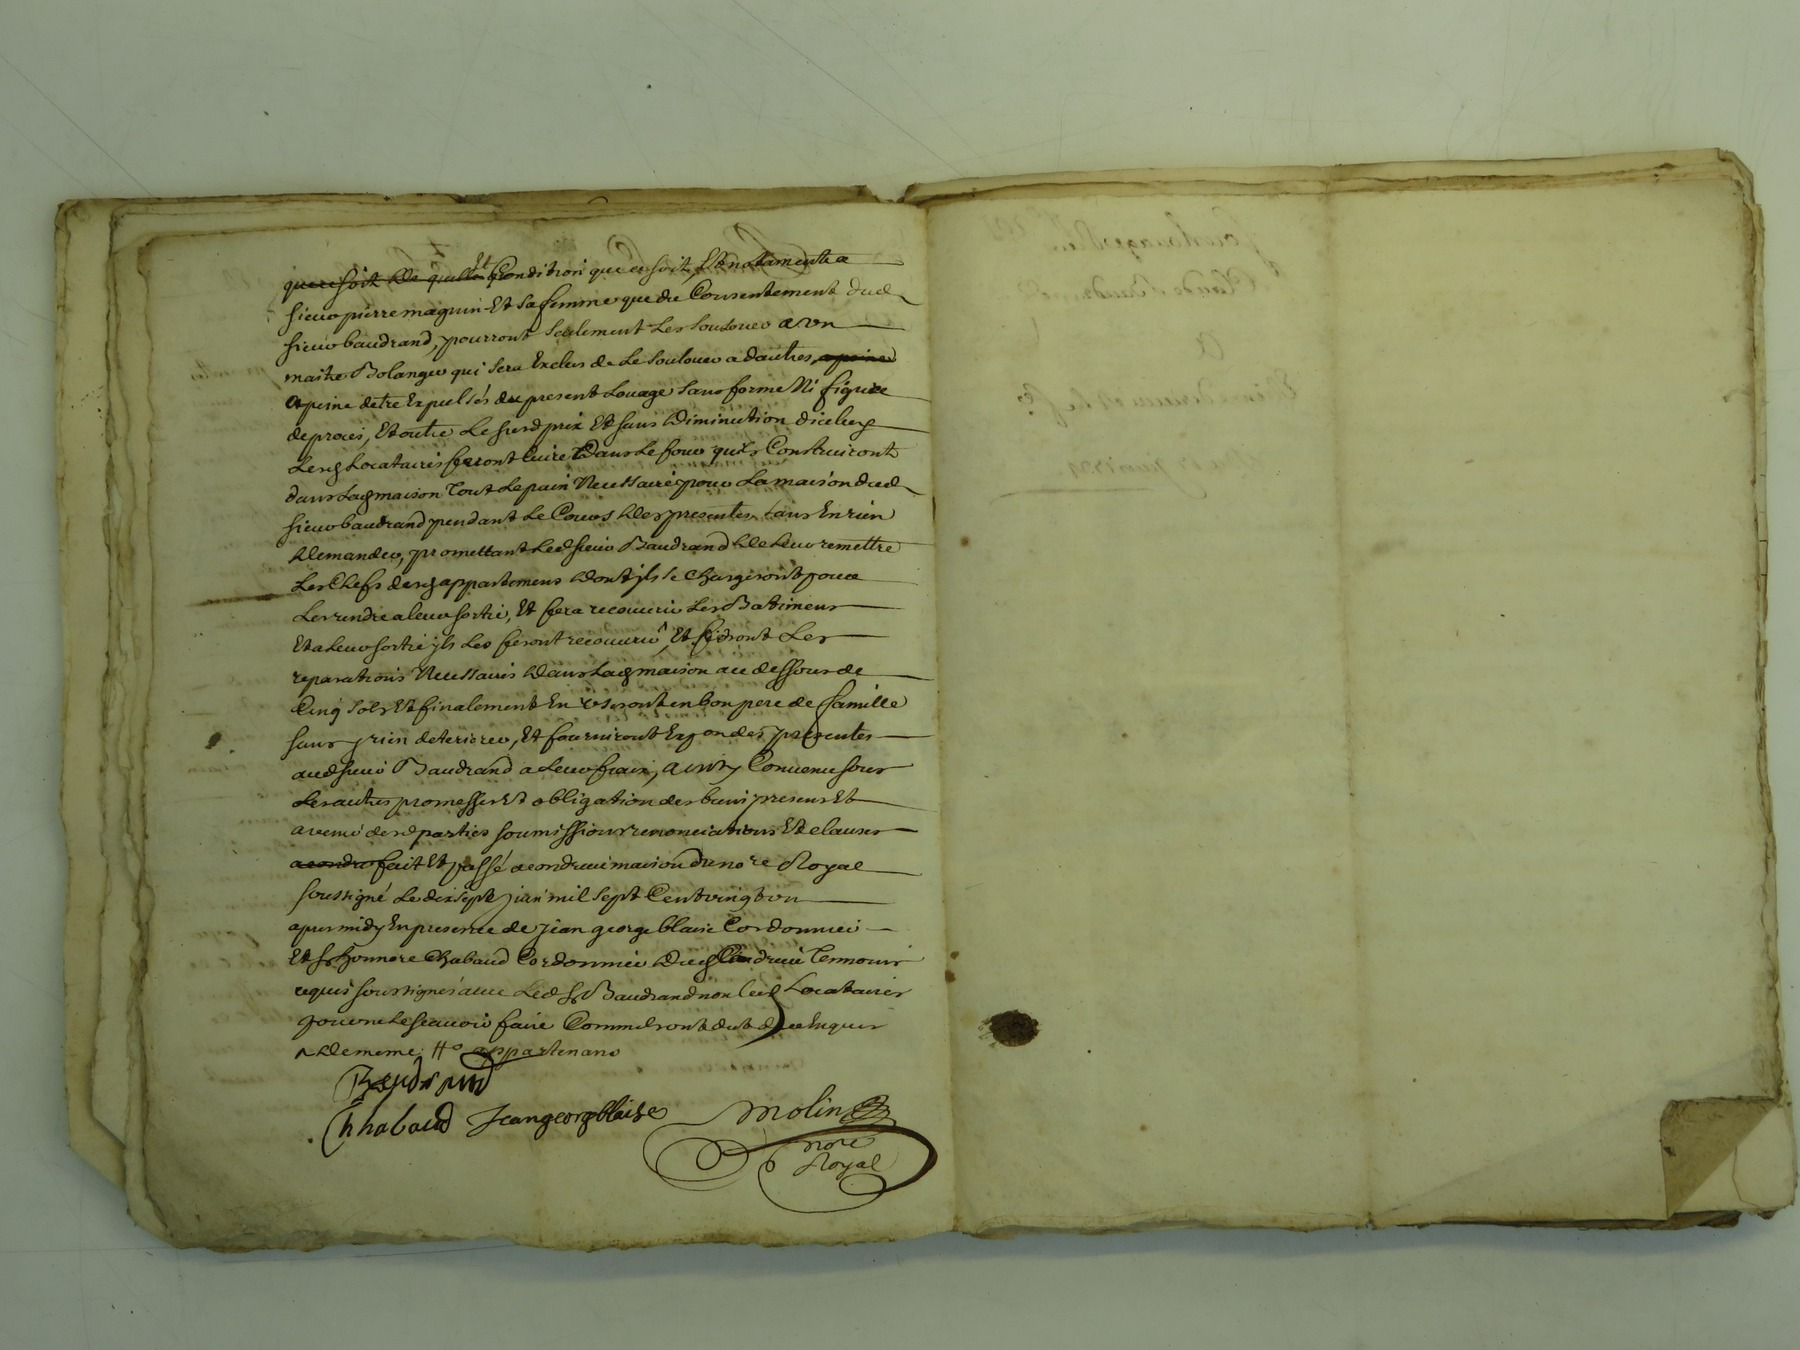 que ce soit de quelle Et Condition que ce soit, Et notament a
sieur pierre maguin Et sa femme que du Consentement dud
sieur baudrand, pourront seulement Les soulouer a un
maitre Bolanger qui sera Exclus de Le soulouer a dautres, a peine
a peine detre Expulsés du present Louage sans forme Ni figure
de proces, Et outre Le susd prix Et sans diminution diceluy
Lesd Locataires feront Cuire Dans Le four quils Construiront
dans lad maison Tout Le pain Necessaire pour La maison dud
sieur baudrand pendant Le Cours des presentes, sans En rien
demander, promettant Led sieur Baudrand de Leur remettre
Les Clefs desd appartemens dont ils se Chargeront pour
Les rendre a leur sortie, Et fera recouvrir Les Batimens
Et a Leur sortie ils Les feront recouvrir ^, Et feront Les
reparations Necessaires Dans Lad maison au dessous de
Cinq sols Et finalement En useront en bon pere de famille
sans y rien deteriorer, Et fourniront Exp on des presentes
aud sieur Baudrand a Leur frais, ainsy Convenu sous
Les autres promesses Et obligation des biens presens Et
avenir desd parties soumissions renonciations Et clauses
a condrieu fait Et passé a condrieu maison du no re Royal
soussigné Le dix sept juin mil sept Cent vingt un
apres midy En presence de jean george blaise Cordonnier
Et sr honnore Chabaud Cordonnier dud Condrieu Temoins
requis soussignés avec Led sr Baudrand non lesd Locataires
pour ne le scavoir faire Comme ont dit de ce Enquis
^ de meme; #o appartenans
Baudrand
Chhabaud Jean george blaise molin
nore
Royal